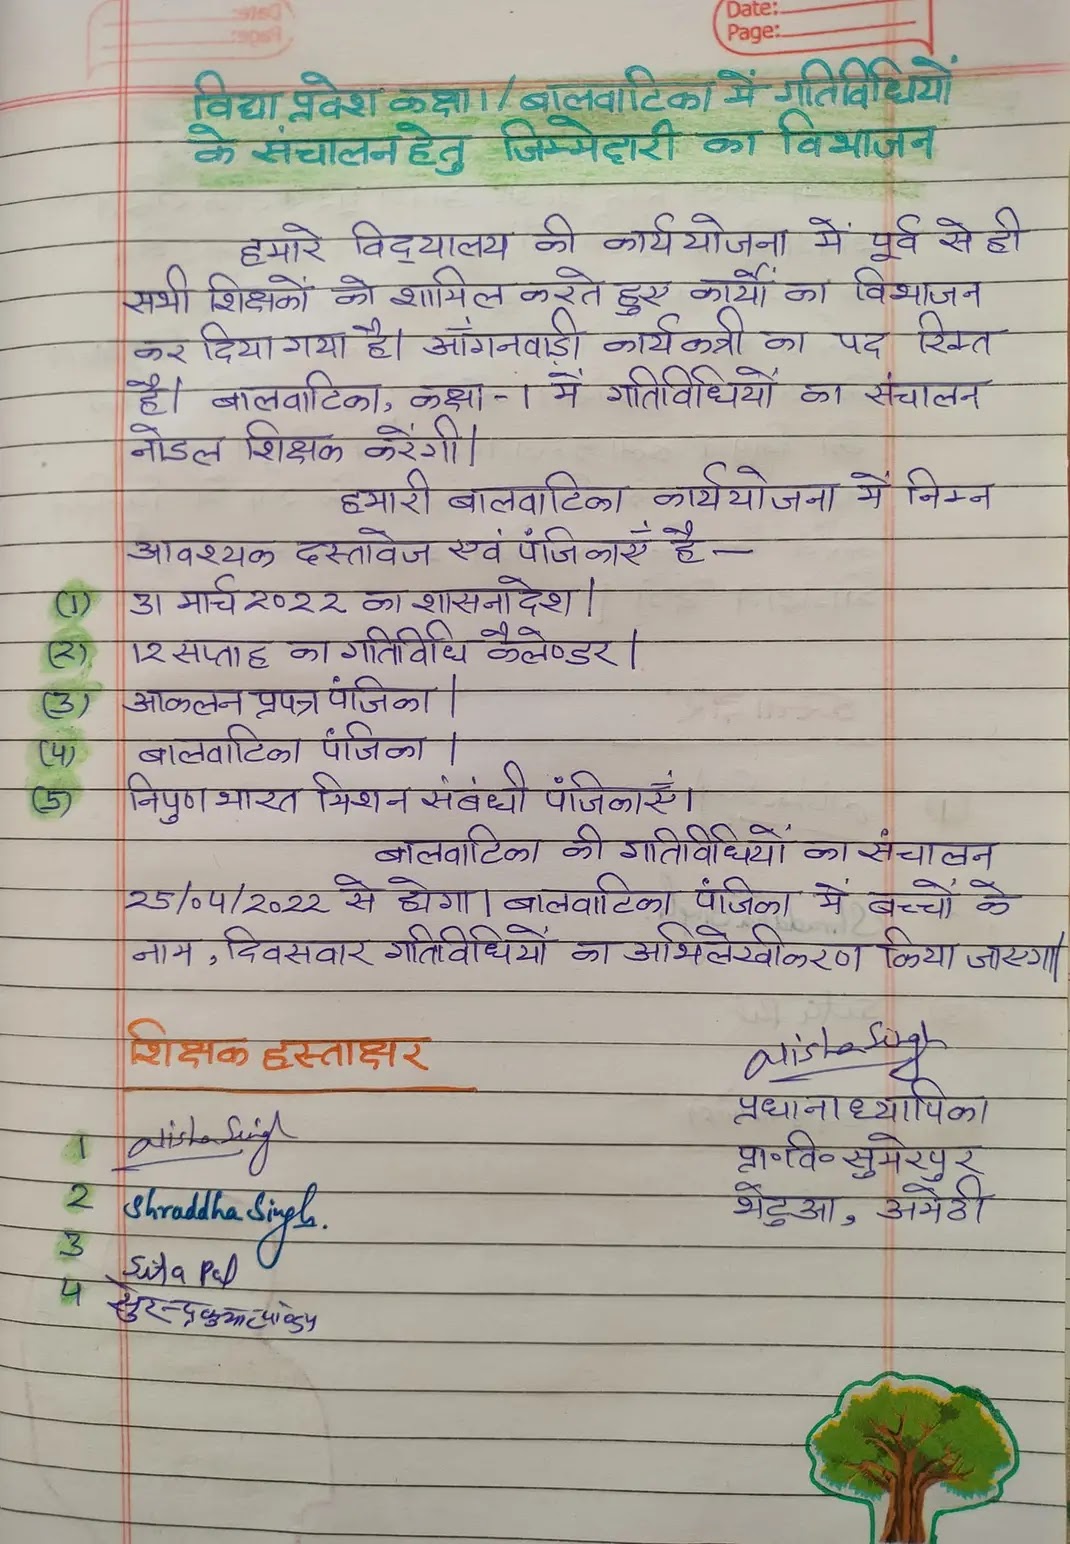 Date:
Page:
विद्या प्रवेश कक्षा 1/बालवाटिका में गतिविधियों
के संचालन हेतु जिम्मेदारी का विभाजन
हमारे विद्यालय की कार्ययोजना में पूर्व से ही
सभी शिक्षकों को शामिल करते हुए कार्यों का विभाजन
कर दिया गया है। आँगनवाड़ी कार्यकत्री का पद रिक्त
है। बालवाटिका, कक्षा-1 में गतिविधियों का संचालन
नोडल शिक्षक करेंगी।
हमारी बालवाटिका कार्ययोजना में निम्न
आवश्यक दस्तावेज एवं पंजिकाएं है —
(1) 31 मार्च २०२२ का शासनादेश।
(२) 1२ सप्ताह का गतिविधि कैलेण्डर।
(3) आकलन प्रपत्र पंजिका।
(4) बालवाटिका पंजिका।
(5) निपुण भारत मिशन संबंधी पंजिकाएं।
बालवाटिका की गतिविधियों का संचालन
25/04/2022 से होगा। बालवाटिका पंजिका में बच्चों के
नाम, दिवसवार गतिविधियों का अभिलेखीकरण किया जाएगा।
शिक्षक हस्ताक्षर
Nisha Singh
प्रधानाध्यापिका
प्रा॰वि॰ सुमेरपुर
भेटुआ, अमेठी
1 Nisha Singh
2 Shraddha Singh.
3 Sita Pal
4 सुरेन्द्र कुमार पाण्डेय